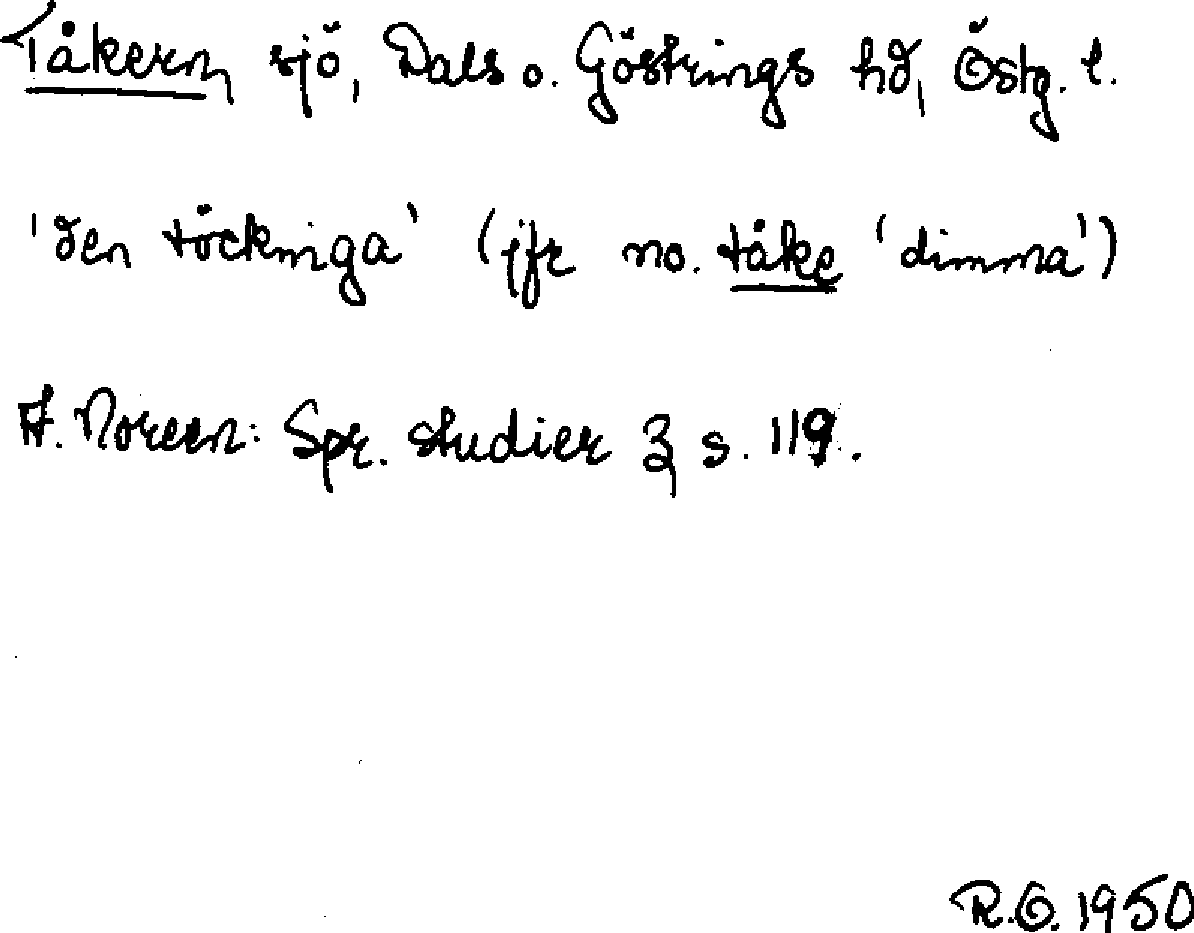 Tåkern sjö, Dals o. Göstrings hd, Östg. l.
'den töckniga' (jfr no. tåke 'dimma')
A. Noreen: Spr. studier 3 s. 119.
R.O. 1950